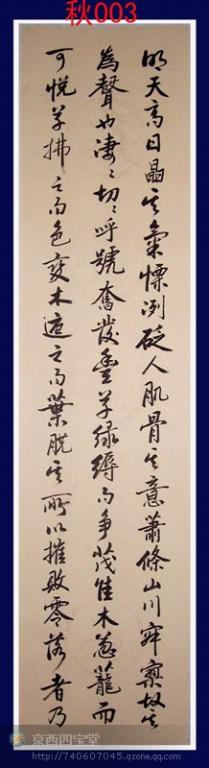 秋003
明天高日晶其氣慄冽砭人肌骨其意蕭條山川寂寥故其
為聲也淒〻切〻呼號奮發豐草綠縟而爭茂佳木蔥蘢而
可悅草拂之而色變木遭之而葉脫其所以摧敗零落者乃
京西四宝堂
http://740607045.qzone.qq.com